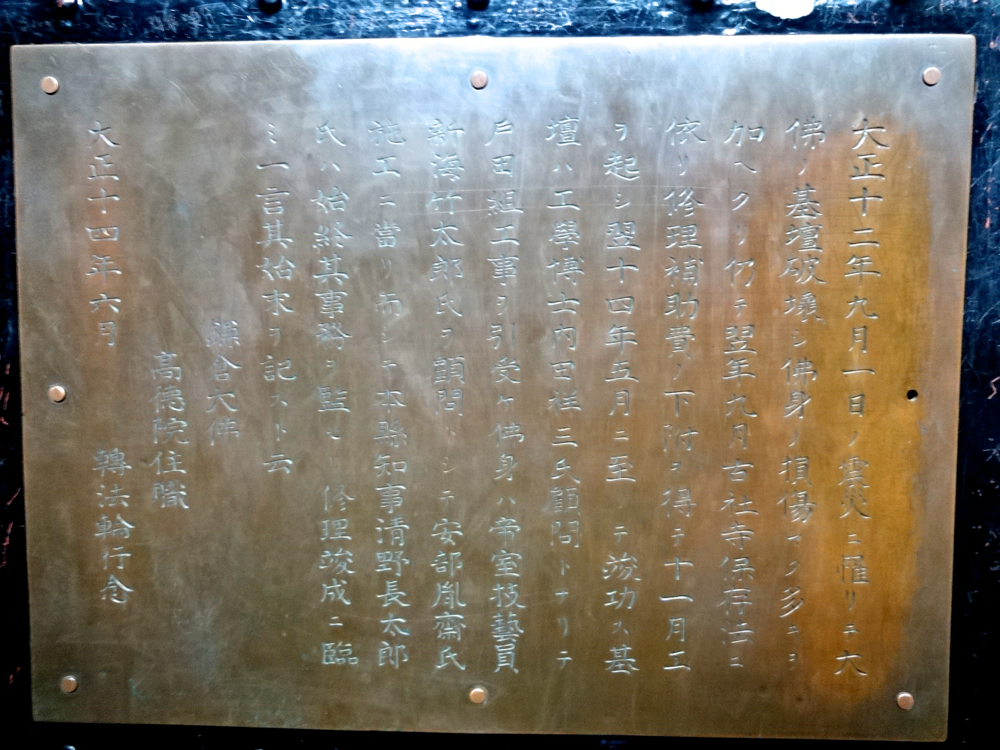 大正十二年九月一日ノ震災ニ罹リテ大
佛ノ基壇破壞シ佛身ノ損傷マタ多キヲ
加ヘタリ仍テ翌年九月古社寺保存法ニ
依リ修理補助費ノ下附ヲ得テ十一月工
ヲ起シ翌十四年五月ニ至リテ竣功ス基
壇ハ工學博士内田祥三氏顧問トナリテ
戸田組工事ヲ引受ケ佛身ハ帝室技藝員
新海竹太郎氏ヲ顧問トシテ安部胤齋氏
施工ニ當リ而シテ本縣知事清野長太郎
氏ハ始終其事務ヲ監セリ 修理竣成ニ臨
ミ一言其始末ヲ記スト云
鎌倉大佛
高德院住職
大正十四年六月 轉法輪行念